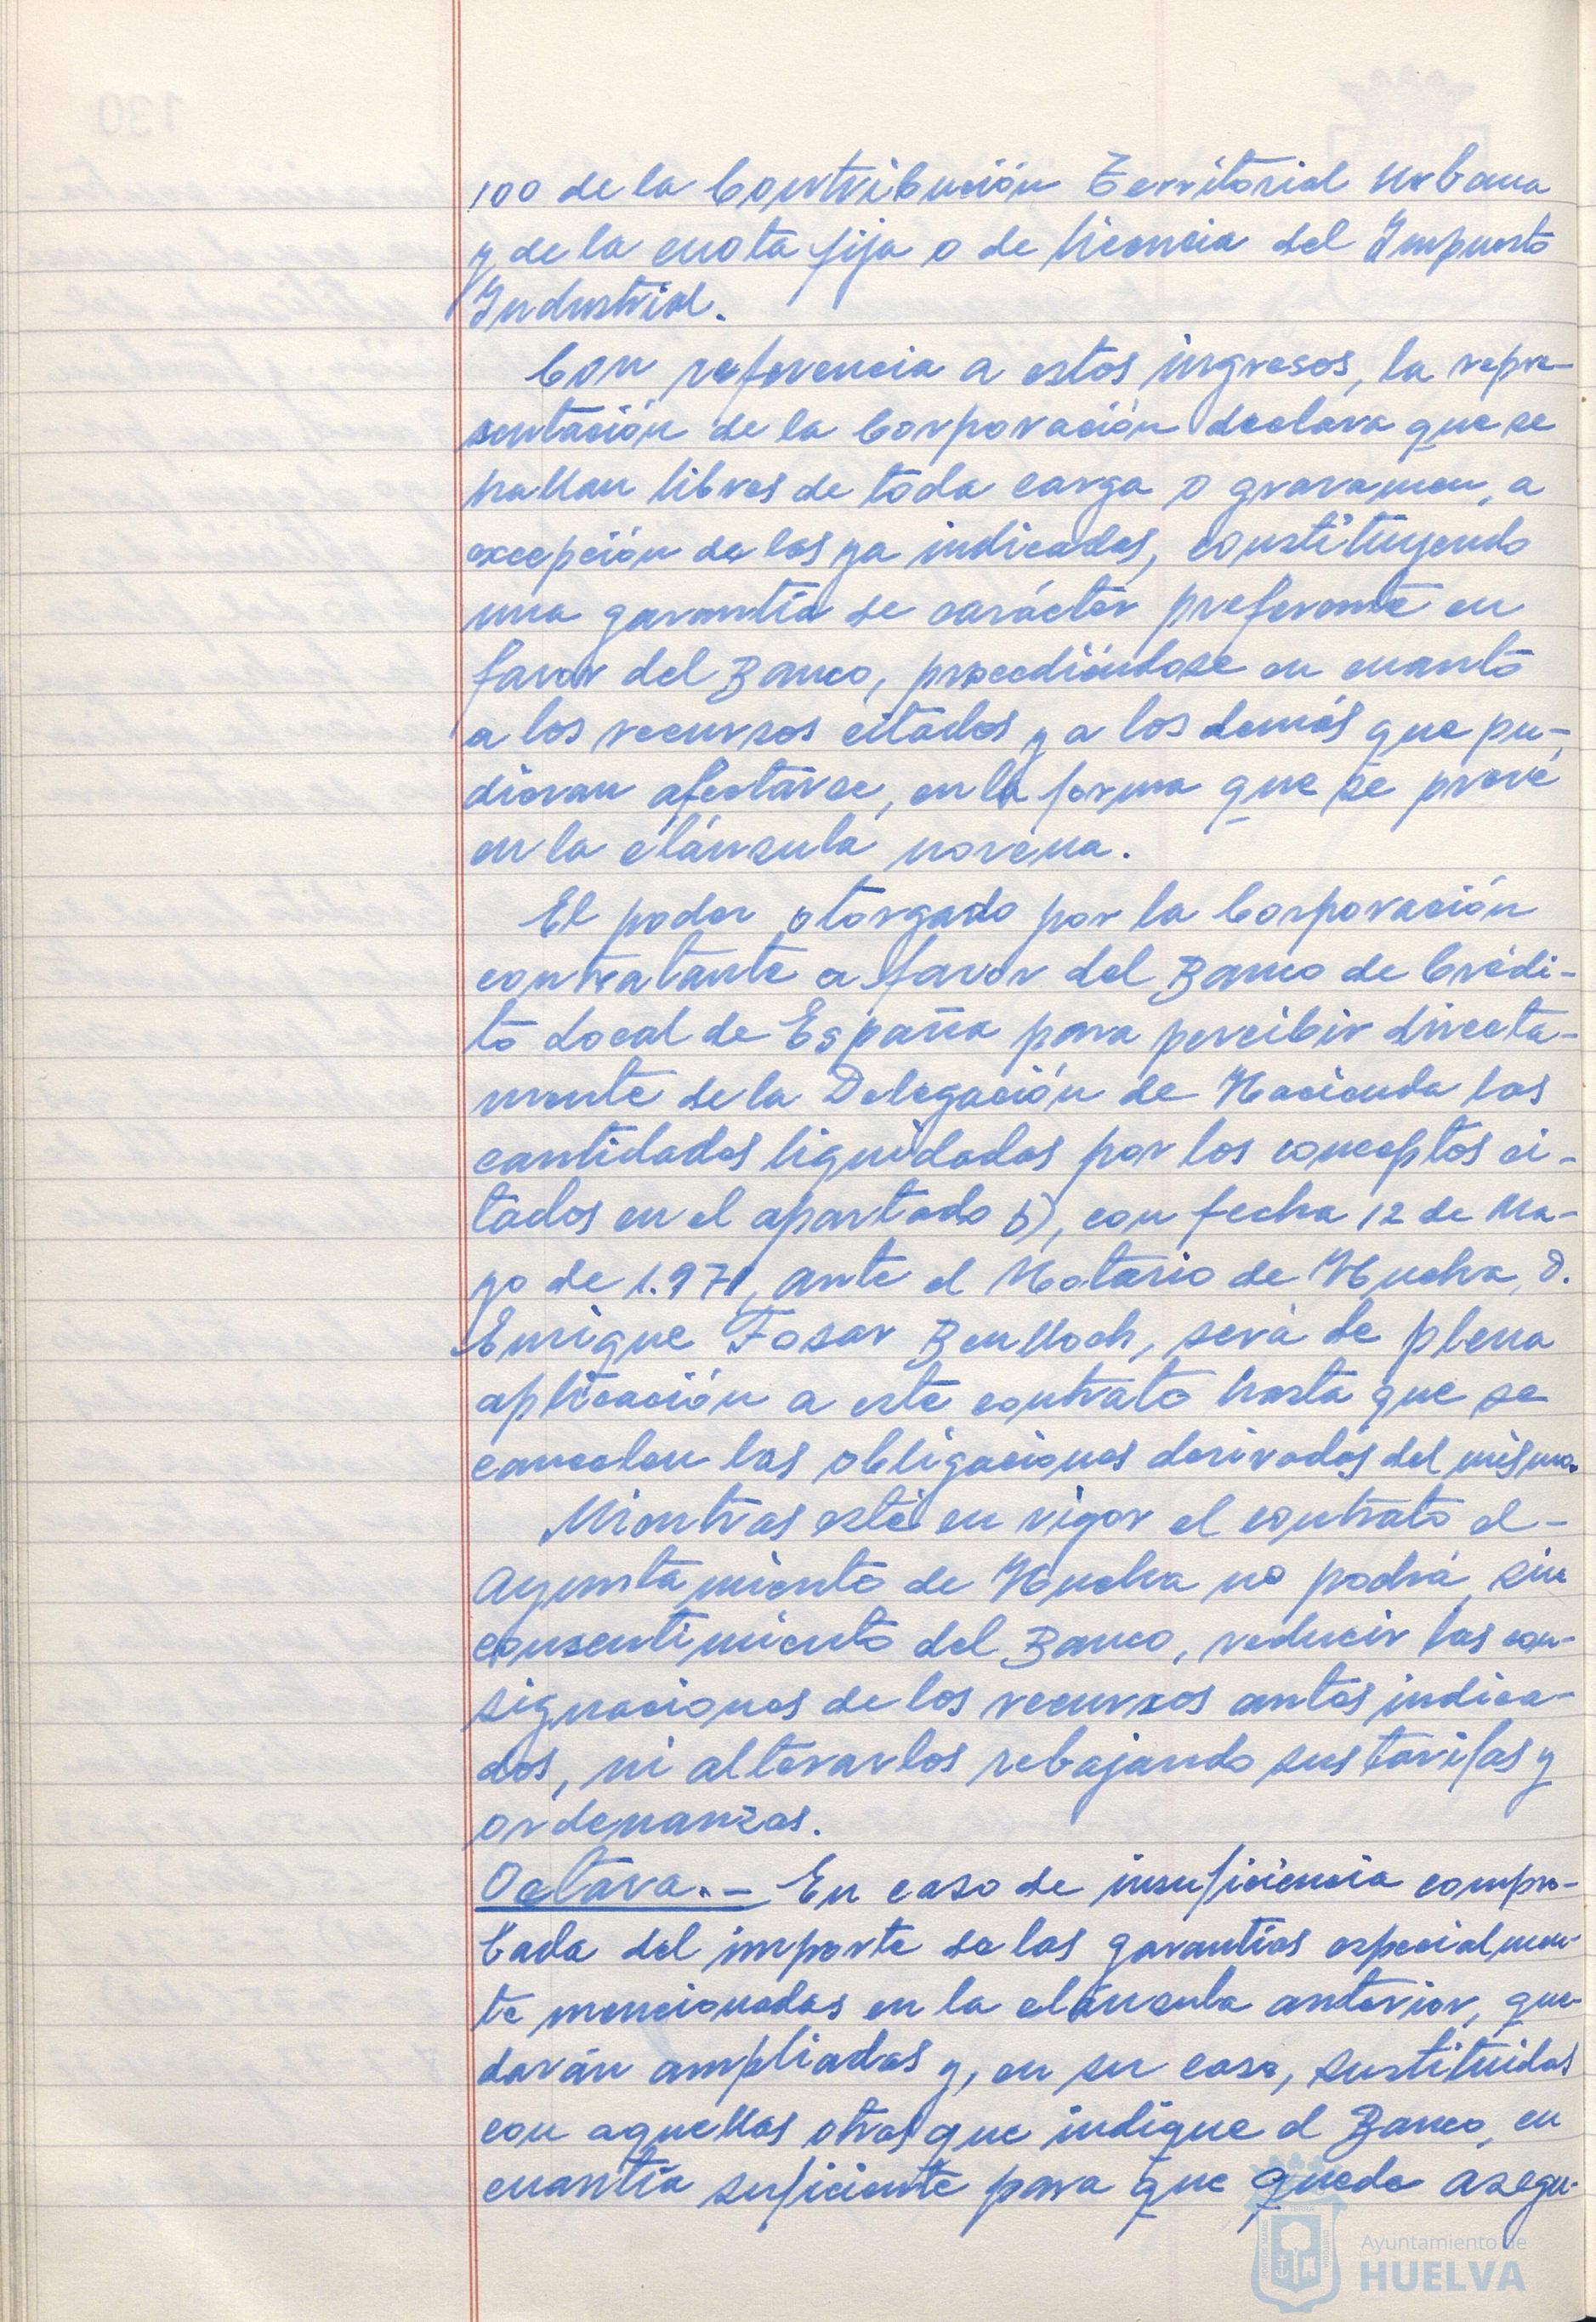 100 de la Contribución Territorial Urbana
y de la cuota fija o de licencia del Impuesto
Industrial.
Con referencia a estos ingresos, la repre-
sentación de la Corporación declara que se
hallan libres de toda carga o gravamen, a
excepción de los ya indicados, constituyendo
una garantía de carácter preferente en
favor del Banco, procediéndose en cuanto
a los recursos citados y a los demás que pu-
dieran afectarse, en la forma que se prevé
en la cláusula novena.
El poder otorgado por la Corporación
contratante a favor del Banco de Crédi-
to Local de España para percibir directa-
mente de la Delegación de Hacienda las
cantidades liquidadas por los conceptos ci-
tados en el apartado b), con fecha 12 de Ma-
yo de 1.971, ante el Notario de Huelva, D.
Enrique Fosar Benlloch, será de plena
aplicación a este contrato hasta que se
cancelen las obligaciones derivadas del mismo.
Mientras esté en vigor el contrato el-
Ayuntamiento de Huelva no podrá, sin
consentimiento del Banco, reducir las con-
signaciones de los recursos antes indica-
dos, ni alterarlos rebajando sus tarifas y
ordenanzas.
Octava.- En caso de insuficiencia compro-
bada del importe de las garantías especialmen-
te mencionadas en la cláusula anterior, que-
darán ampliadas y, en su caso, sustituidas
con aquellas otras que indique el Banco, en
cuantía suficiente para que quede asegu-
Ayuntamiento de
HUELVA